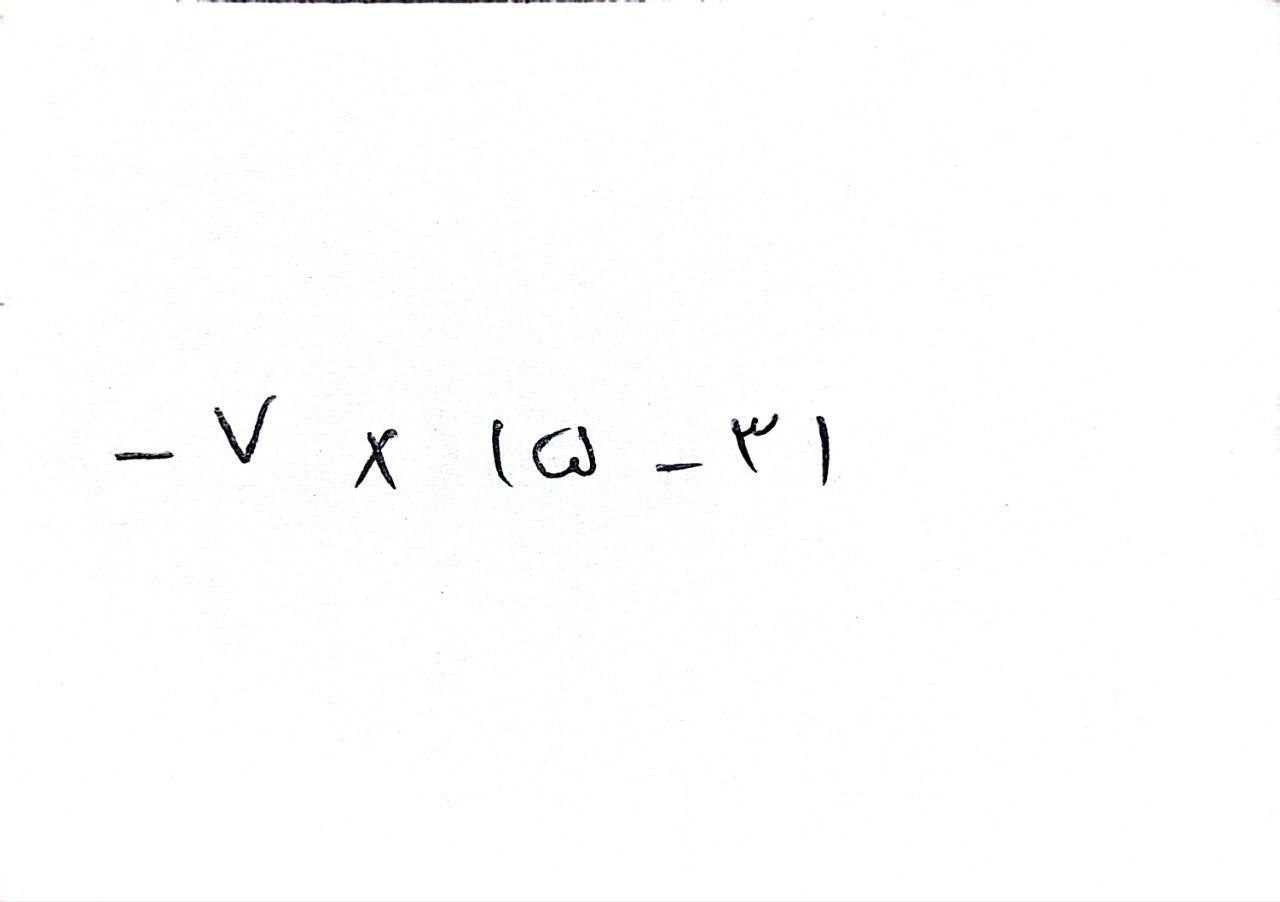 -۷ × ۱۵ - ۳۱